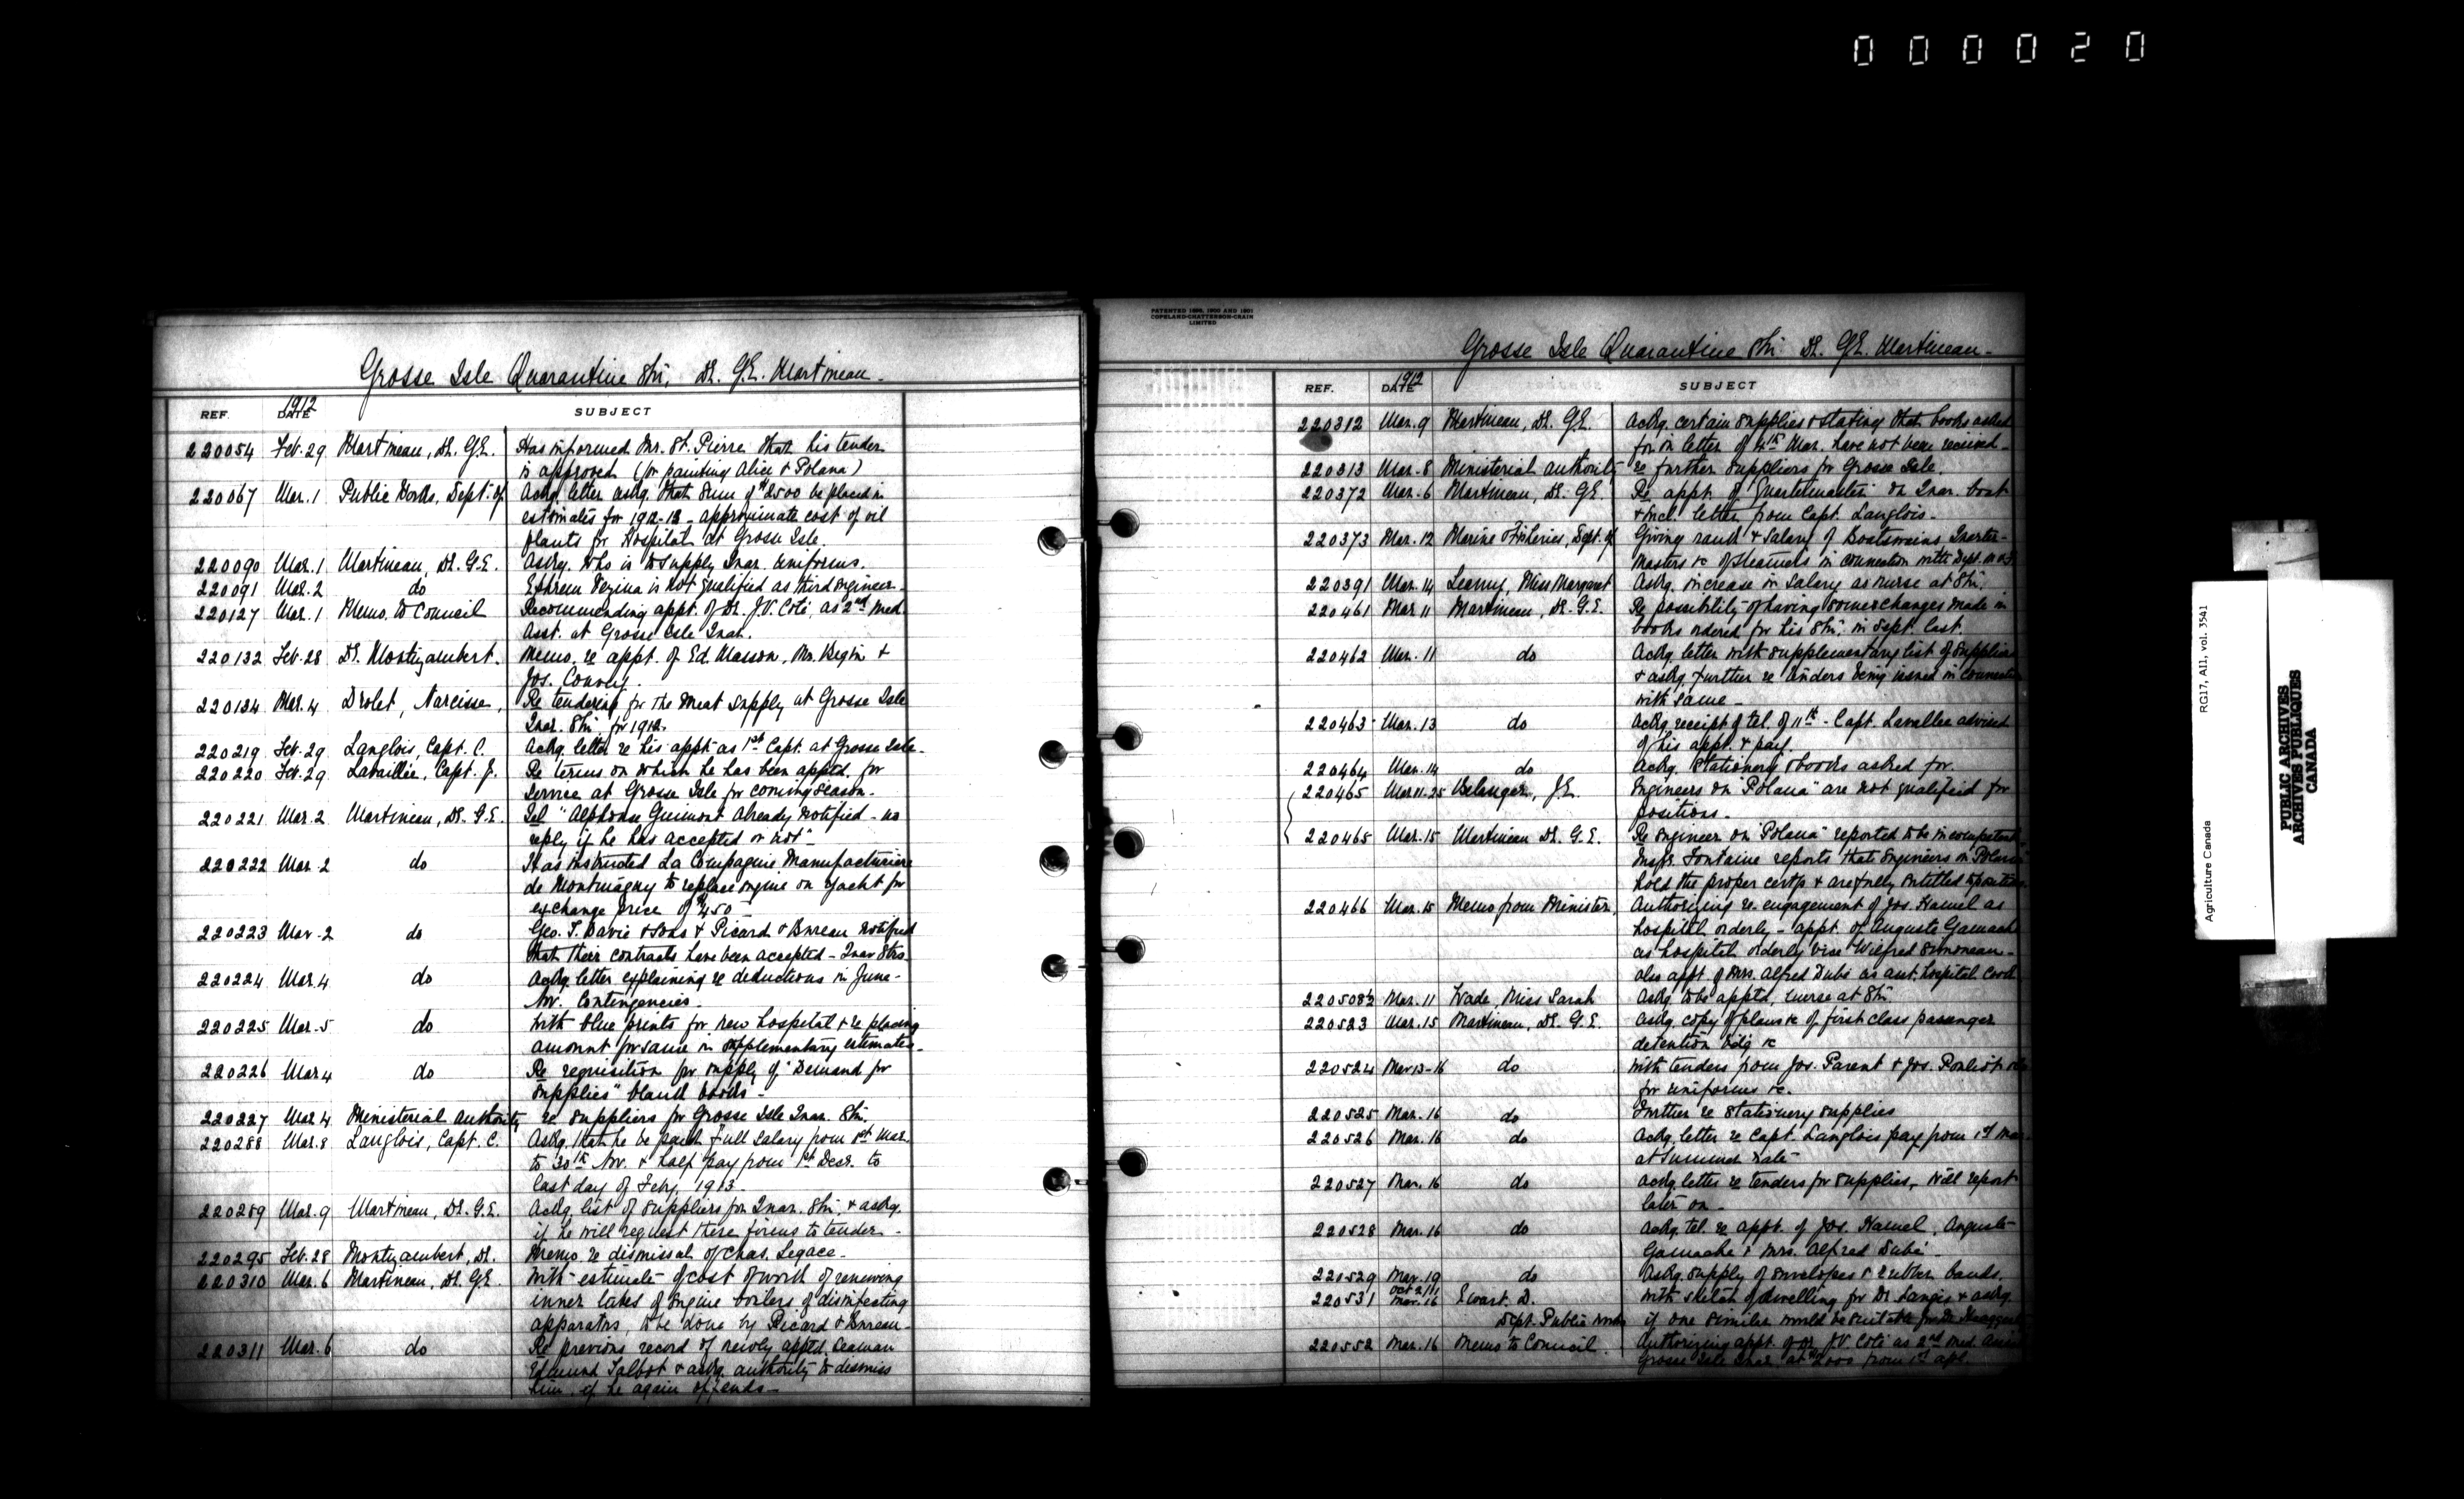 000020
Grosse Isle Quarantine Stn. Dr. G.E. Martineau.
REF. DATE 1912 SUBJECT
220054 Feb. 29 Martineau, Dr. G.E. Has informed Mr. St. Pierre that his tender
is approved (for painting Alice & Polana)
220067 Mar. 1 Public Works, Dept. of Ackg. letter askg. that sum of $2500 be placed in
estimates for 1912-13 - approximate cost of oil
plants for Hospital at Grosse Isle.
220090 Mar. 1 Martineau, Dr. G.E. Askg. who is to supply Quar. uniforms.
220091 Mar. 2 do Ephrem Vezina is not qualified as third engineer.
220127 Mar. 1 Memo. to Council Recommending appt. of Dr. J.V. Coté, as 2nd Med.
Asst. at Grosse Isle Quar.
220132 Feb. 28 Dr. Montizambert. Memo. re appt. of Ed. Masson, Mr. Begin &
Jos. Convey.
220134 Mar. 4 Drolet, Narcisse, Re tendering for the Meat Supply at Grosse Isle
Quar. Stn. for 1912.
220219 Feb. 29 Langlois, Capt. C. Ackg. letter re his appt. as 1st Capt. at Grosse Isle.
220220 Feb. 29 Lavaillée, Capt. J. Re terms on which he has been apptd. for
service at Grosse Isle for coming season.
220221 Mar. 2 Martineau, Dr. G.E. Tel "Alphonse Guimont already notified - no
reply if he has accepted or not"
220222 Mar. 2 do Has instructed La Compagnie Manufacturiere
de Montmagny to replace engine on yacht for
exchange price of $450
220223 Mar. 2 do Geo. T. Davie & Sons & Picard & Bureau notified
that their contracts have been accepted - Quar Strs.
220224 Mar. 4 do Ackg. letter explaining re deductions in June-
Nov. Contingencies.
220225 Mar. 5 do With blue prints for new hospital & re placing
amount for same in supplementary estimates.
220226 Mar 4 do Re requisition for supply of "Demand for
Supplies" blank books.
220227 Mar. 4 Ministerial Authority re suppliers for Grosse Isle Quar. Stn.
220288 Mar. 8 Langlois, Capt. C. Askg. that he be paid full salary from 1st Mar.
to 30th Nov. & half pay from 1st Decr. to
last day of Feby. 1913.
220289 Mar. 9 Martineau, Dr. G.E. Ackg. list of suppliers for Quar. Stn. & askg.
if he will request these firms to tender.
220295 Feb. 28 Montizambert, Dr. Memo re dismissal of Chas. Legace.
220310 Mar. 6 Martineau, Dr. G.E. With estimate of cost of work of renewing
inner tubes of engine boilers of disinfecting
apparatus, to be done by Picard & Bureau.
220311 Mar. 6 do Re previous record of newly apptd. seaman
Edmund Talbot & askg. authority to dismiss
him if he again offends.
PATENTED 1896, 1900 AND 1901
COPELAND-CHATTERSON-CRAIN
LIMITED
Grosse Isle Quarantine Stn. Dr. G.E. Martineau.
REF. DATE 1912 SUBJECT
220312 Mar. 9 Martineau, Dr. G.E. Ackg. certain supplies & stating that books asked
for in letter of 4th Mar. have not been received.
220313 Mar. 8 Ministerial Authority re further suppliers for Grosse Isle.
220372 Mar. 6 Martineau, Dr. G.E. Re appt. of Quartermaster on Quar. boat
& incl. letter from Capt. Langlois.
220373 Mar. 12 Marine & Fisheries, Dept. of Giving rank & salary of Boatswains Quarter-
Masters &c of steamers in connection with Dept. M & F.
220391 Mar. 14 Leamy, Miss Margaret Askg. increase in salary as nurse at Stn.
220461 Mar 11 Martineau, Dr. G.E. Re possibility of having some changes made in
books ordered for his Stn. in Sept. last.
220462 Mar. 11 do Ackg letter with supplementary list of suppliers
& askg. further re tenders being issued in connection
with same.
220463 Mar. 13 do Ackg. receipt of tel. of 11th - Capt. Lavallee advised
of his appt. & pay.
220464 Mar. 14 do Ackg. stationery & books asked for.
220465 Mar 11-25 Belanger, J.E. Engineers on "Polana" are not qualified for
positions.
220465 Mar. 15 Martineau Dr. G.E. Re engineer on "Polana" reported to be incompetent
Inspr. Fontaine reports that engineers on Polana
hold the proper certfs & are fully entitled to position.
220466 Mar. 15 Memo from Minister, Authorizing re-engagement of Jos. Hamel as
hospital orderly - appt. of Auguste Gamache
as hospital orderly vice Wilfred Simoneau -
also appt. of Mrs. Alfred Dubé as asst. hospital cook
220508½ Mar. 11 Wade, Miss Sarah Askg. to be apptd. nurse at Stn.
220523 Mar. 15 Martineau, Dr. G.E. Askg. copy of plans &c of first class passenger
detention bldg &c
220524 Mar 13-16 do With tenders from Jos. Parent & Jos. Pouliot
for uniforms &c.
220525 Mar. 16 do Further re stationery supplies
220526 Mar. 16 do Ackg. letter re Capt. Langlois pay from 1st Mar.
at summer rate
220527 Mar. 16 do Ackg. letter re tenders for supplies, will report
later on.
220528 Mar. 16 do Ackg. tel. re appt. of Jos. Hamel, Auguste
Gamache & Mrs. Alfred Dubé.
220529 Mar. 19 do Askg. supply of envelopes & rubber bands.
220531 Oct 2/11 Mar. 16 Ewart. D. With sketch of dwelling for Dr. Langis & askg.
Dept. Public Works if one similar would be suitable for
220552 Mar. 16 Memo to Council. Authorizing appt. of Dr. J.V. Coté as 2nd Med. Assist
Grosse Isle Quar. at $2000 from 1st Apl.
RG17, AII, vol. 3541
Agriculture Canada
PUBLIC ARCHIVES
ARCHIVES PUBLIQUES
CANADA